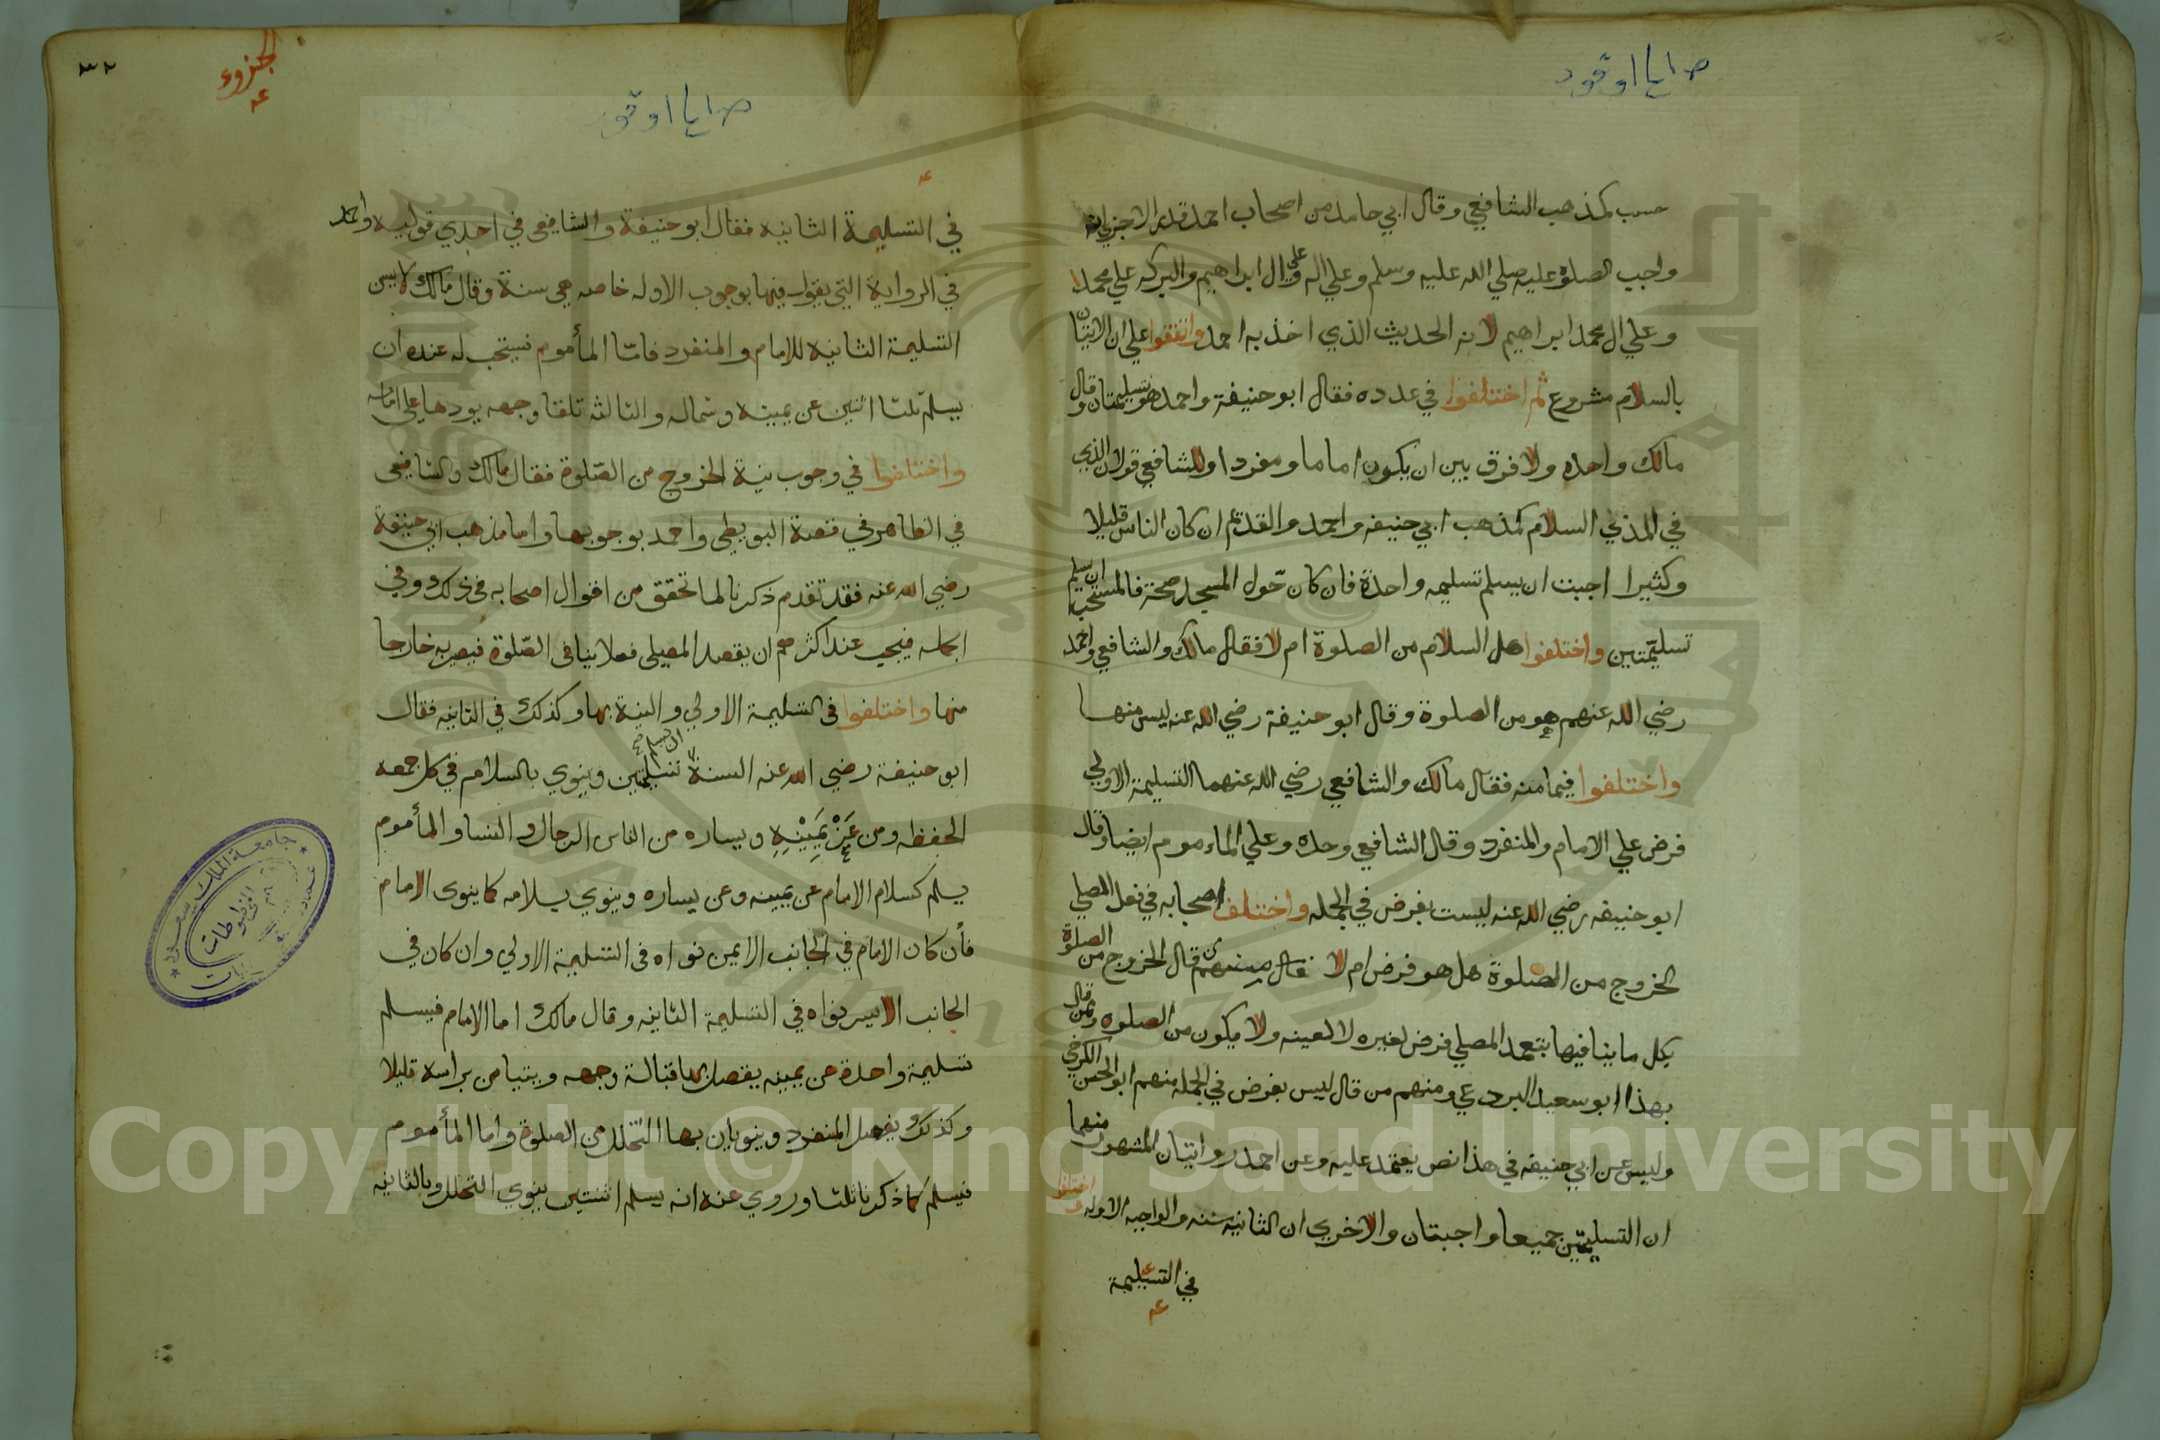 حسب كمذهب الشافعي وقال ابي حامد من اصحاب احمد قدر الاجزي انه
واجب الصلوة عليه صلي الله عليه وسلم وعلي اله وعلي ال ابراهيم والبركه علي محمد
وعلي ال محمد ابراهيم لانه الحديث الذي اخذ به احمد واتفقوا علي ان الاتيان
بالسلام مشروع ثم اختلفوا في عدده فقال ابو حنيفة واحمد هو تسليمتان وقال
مالك واحده ولا فرق بين ان يكون اماما ومفردا وللشافعي قولان الذي
في المذني السلام كمذهب ابي حنيفه واحمد والقديم ان كان الناس قليلا
وكثيرا اجبت ان يسلم تسليمه واحدة فان كان حول المسجد ضجة فالمستحب ان يسلم
تسليمتين واختلفوا هل السلام من الصلوة ام لا فقال مالك والشافعي واحمد
رضي الله عنهم هو من الصلوة وقال ابو حنيفة رضي الله عنه ليس منها
واختلفوا فيما منه فقال مالك والشافعي رضي الله عنهما التسليمة الاولي
فرض علي الامام والمنفرد وقال الشافعي وحده وعلي الماءموم ايضا وقال
ابو حنيفه رضي الله عنه ليست بفرض في الجمله واختلف اصحابه في فعل المصلي
الخروج من الصلوة هل هو فرض ام لا فقال منهم من قال الخروج من الصلوة
بكل ما ينافيها بتعمد المصلي فرض لغيره لا لعينه ولا يكون من الصلوه وممن قال
بهذا ابو سعيد البردعي ومنهم من قال ليس بفرض في الجمله منهم ابو الحسن الكرخي
وليس عن ابي حنيفه في هذا نص يعتمد عليه وعن احمد روايتان المشهور منهما
ان التسليمتين جميعا واجبتان والاخري ان الثانيه سنه والواجبه الاوله واختلفوا
في التسليمة
٣٢
الجزوء
في التسليمة الثانيه فقال ابو حنيفة والشافعي في احدي قوليه واحمد
في الرواية التي يقول فيها بوجوب الاوله خاصه هي سنة وقال مالك لا يسن
التسليمة الثانيه للامام والمنفرد فامّا المأموم فيستحب له عنده ان
يسلّم ثلثا اثنين عن يمينه وشماله والثالثه تلقا وجهه يردها علي امامه
واختلفوا في وجوب نية الخروج من الصّلوة فقال مالك والشافعي
في الظاهر في البويطي واحمد بوجوبها واما مذهب ابي حنيفة
رضي الله عنه فقد تقدم ذكرنا لما تحقق من اقوال اصحابه في ذلك وفي
الجمله فيجب عند اكثرهم ان يقصد المصلي فعلا ينافي الصّلوة فيصير به خارجا
منها واختلفوا في التسليمة الاولي والنية بها وكذلك في الثانيه فقال
ابو حنيفة رضي الله عنه السنة ان يسلم تسليمتين وينوي بالسلام في كل جمعه
الحفظه ومن عَنْ يَمِيْنِهِ ويساره من الناس الرجال والنسا والمأموم
يسلم كسلام الامام عن يمينه وعن يساره وينوي بسلامه كما ينوي الامام
فأن كان الامام في الجانب الايمن نواه في التسليمة الاولي وان كان في
الجانب الايسر نواه في التسليمة الثانيه وقال مالك اما الامام فيسلم
تسليمة واحدة عن يمينه يقصد بها قبالة وجهه ويتيامن براسه قليلا
وكذلك يفعل المنفرد وينويان بها التّحلل من الصلوة واما المأموم
فيسلم كما ذكرنا ثلثا وروي عنه انه يسلم اثنتين ينوي التحلل وبالثانيه
جامعة الملك سعود
المخطوطات
Copyright © King Saud University